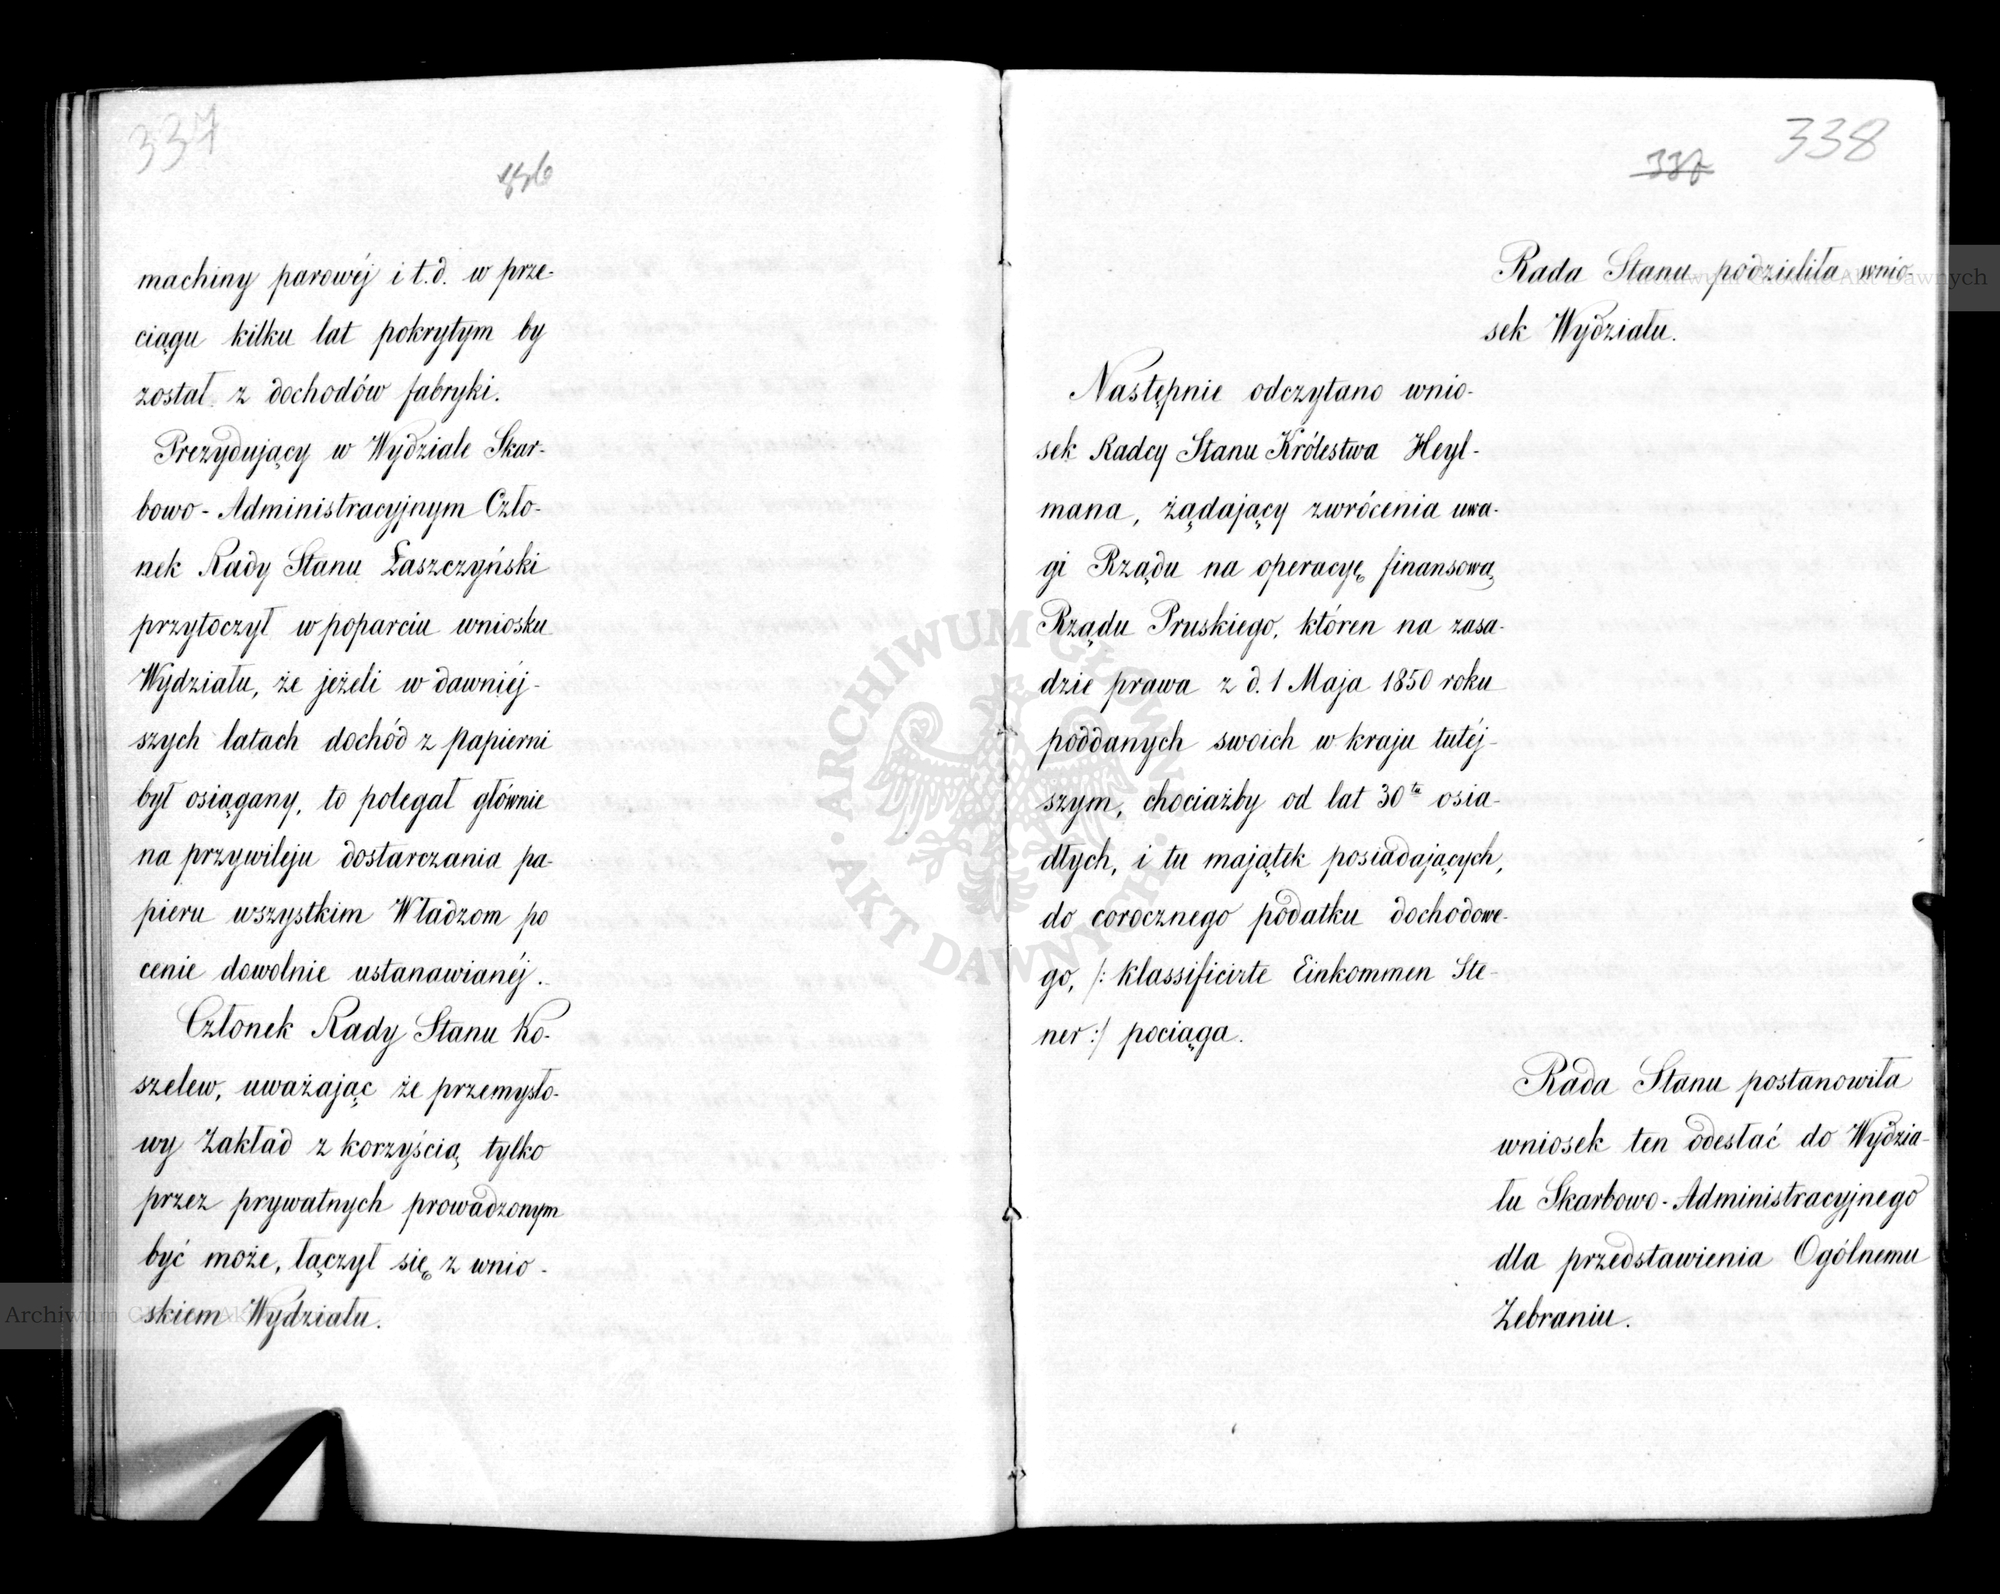 337
336
machiny parowéj i t.d. w prze-
ciągu kilku lat pokrytym by
został z dochodów fabryki.
Prezydujący w Wydziale Skar-
bowo-Administracyjnym Czło-
nek Rady Stanu Łaszczyński
przytoczył w poparciu wniosku
Wydziału, że jeżeli w dawniéj-
szych latach dochód z papierni
był osiągany, to polegał głównie
na przywileju dostarczania pa-
pieru wszystkim Władzom po
cenie dowolnie ustanawianéj.
Członek Rady Stanu Ko-
szelew, uważając że przemysło-
wy Zakład z korzyścią tylko
przez prywatnych prowadzonym
być może, łączył się z wnio-
skiem Wydziału.
338
337
Rada Stanu podzieliła wnio-
sek Wydziału.
Następnie odczytano wnio-
sek Radcy Stanu Królestwa Heyl-
mana, żądający zwrócenia uwa-
gi Rządu na operacyę finansową
Rządu Pruskiego, któren na zasa-
dzie prawa z d. 1 Maja 1850 roku
poddanych swoich w kraju tutéj-
szym, chociażby od lat 30tu osia-
dłych, i tu majątek posiadających,
do corocznego podatku dochodowe-
go, /: klassificirte Einkommen Ste-
ner :/ pociąga.
Rada Stanu postanowiła
wniosek ten odesłać do Wydzia-
łu Skarbowo-Administracyjnego
dla przedstawienia Ogólnemu
Zebraniu.
ARCHIWUM GŁÓWNE AKT DAWNYCH
Archiwum Główne Akt Dawnych
Archiwum Główne Akt